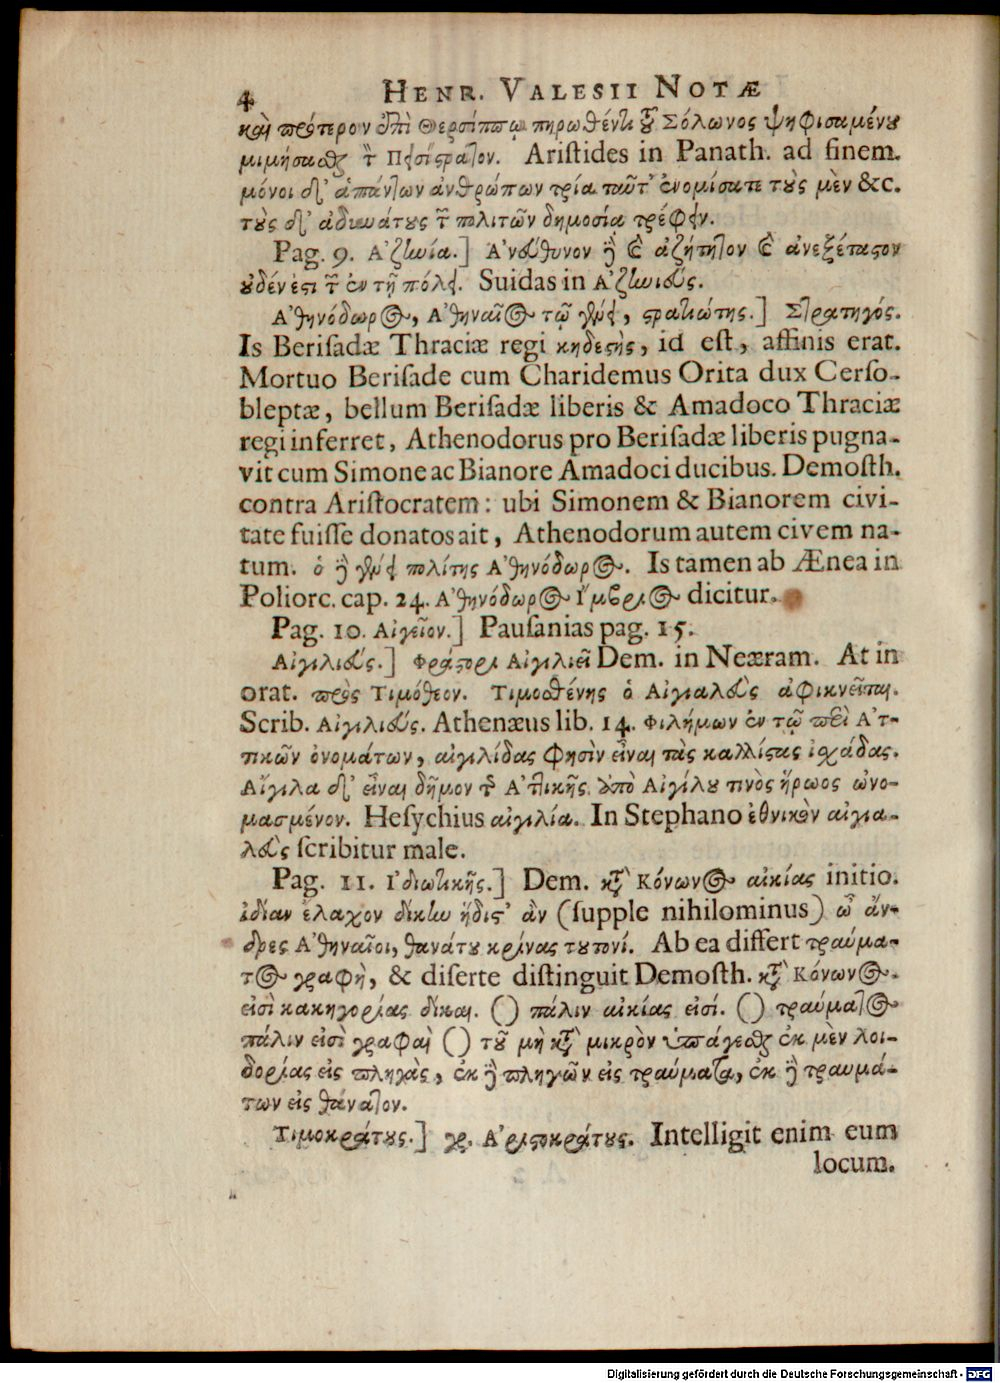 4 HENR. VALESII NOTÆ
καὶ πρότερον ἐπὶ Θερσίππῳ πηρωθέντι τοῦ Σόλωνος ψηφισαμένου
μιμήσασθαι τὸν Πεισίστρατον. Ariſtides in Panath. ad finem.
μόνοι δ' ἁπάντων ἀνθρώπων τρία ταῦτ' ἐνομίσατε τοὺς μὲν &c.
τοὺς δ' ἀδυνάτους τῶν πολιτῶν δημοσία τρέφειν.
Pag. 9. Ἀζηνία.] Ἀνεύθυνον δὲ καὶ ἀζήτητον καὶ ἀνεξέταστον
οὐδέν ἐστι τῶν ἐν τῇ πόλει. Suidas in Ἀζηνιεύς.
Ἀθηνόδωρος, Ἀθηναῖος τῷ γένει, στρατιώτης.] Στρατηγός.
Is Beriſadæ Thraciæ regi κηδεστὴς, id eſt, affinis erat.
Mortuo Beriſade cum Charidemus Orita dux Cerſo-
bleptæ, bellum Beriſadæ liberis & Amadoco Thraciæ
regi inferret, Athenodorus pro Beriſadæ liberis pugna-
vit cum Simone ac Bianore Amadoci ducibus. Demoſth.
contra Ariſtocratem: ubi Simonem & Bianorem civi-
tate fuiſſe donatos ait, Athenodorum autem civem na-
tum. ὁ δὲ γένει πολίτης Ἀθηνόδωρος. Is tamen ab Ænea in
Poliorc. cap. 24. Ἀθηνόδωρος Ἴμβριος dicitur.
Pag. 10. Αἰγεῖον.] Pauſanias pag. 15.
Αἰγιλιεύς.] Φράτορι Αἰγιλιεῖ Dem. in Neæram. At in
orat. πρὸς Τιμόθεον. Τιμοσθένης ὁ Αἰγιαλεὺς ἀφικνεῖται.
Scrib. Αἰγιλιεύς. Athenæus lib. 14. Φιλήμων ἐν τῷ περὶ Ἀτ-
τικῶν ὀνομάτων, αἰγιλίδας φησὶν εἶναι τὰς καλλίστας ἰσχάδας.
Αἴγιλα δ' εἶναι δῆμον τῆς Ἀττικῆς ἀπὸ Αἰγίλου τινὸς ἥρωος ὠνο-
μασμένον. Heſychius αἰγιλία. In Stephano ἐθνικὸν αἰγια-
λεὺς ſcribitur male.
Pag. 11. Ἰδιωτικῆς.] Dem. κατὰ Κόνωνος αἰκίας initio.
ἰδίαν ἔλαχον δίκην ἥδιστ' ἂν (ſupple nihilominus) ὦ ἄν-
δρες Ἀθηναῖοι, θανάτου κρίνας τουτονί. Ab ea differt τραύμα-
τος γραφὴ, & diſerte diſtinguit Demoſth. κατὰ Κόνωνος.
εἰσὶ κακηγορίας δίκαι. () πάλιν αἰκίας εἰσί. () τραύματος
πάλιν εἰσὶ γραφαὶ () τοῦ μὴ κατὰ μικρὸν ὑπάγεσθαι ἐκ μὲν λοι-
δορίας εἰς πληγὰς, ἐκ δὲ πληγῶν εἰς τραύματα, ἐκ δὲ τραυμά-
των εἰς θάνατον.
Τιμοκράτους.] γρ. Ἀριστοκράτους. Intelligit enim eum
locum.
Digitalisierung gefördert durch die Deutsche Forschungsgemeinschaft - DFG